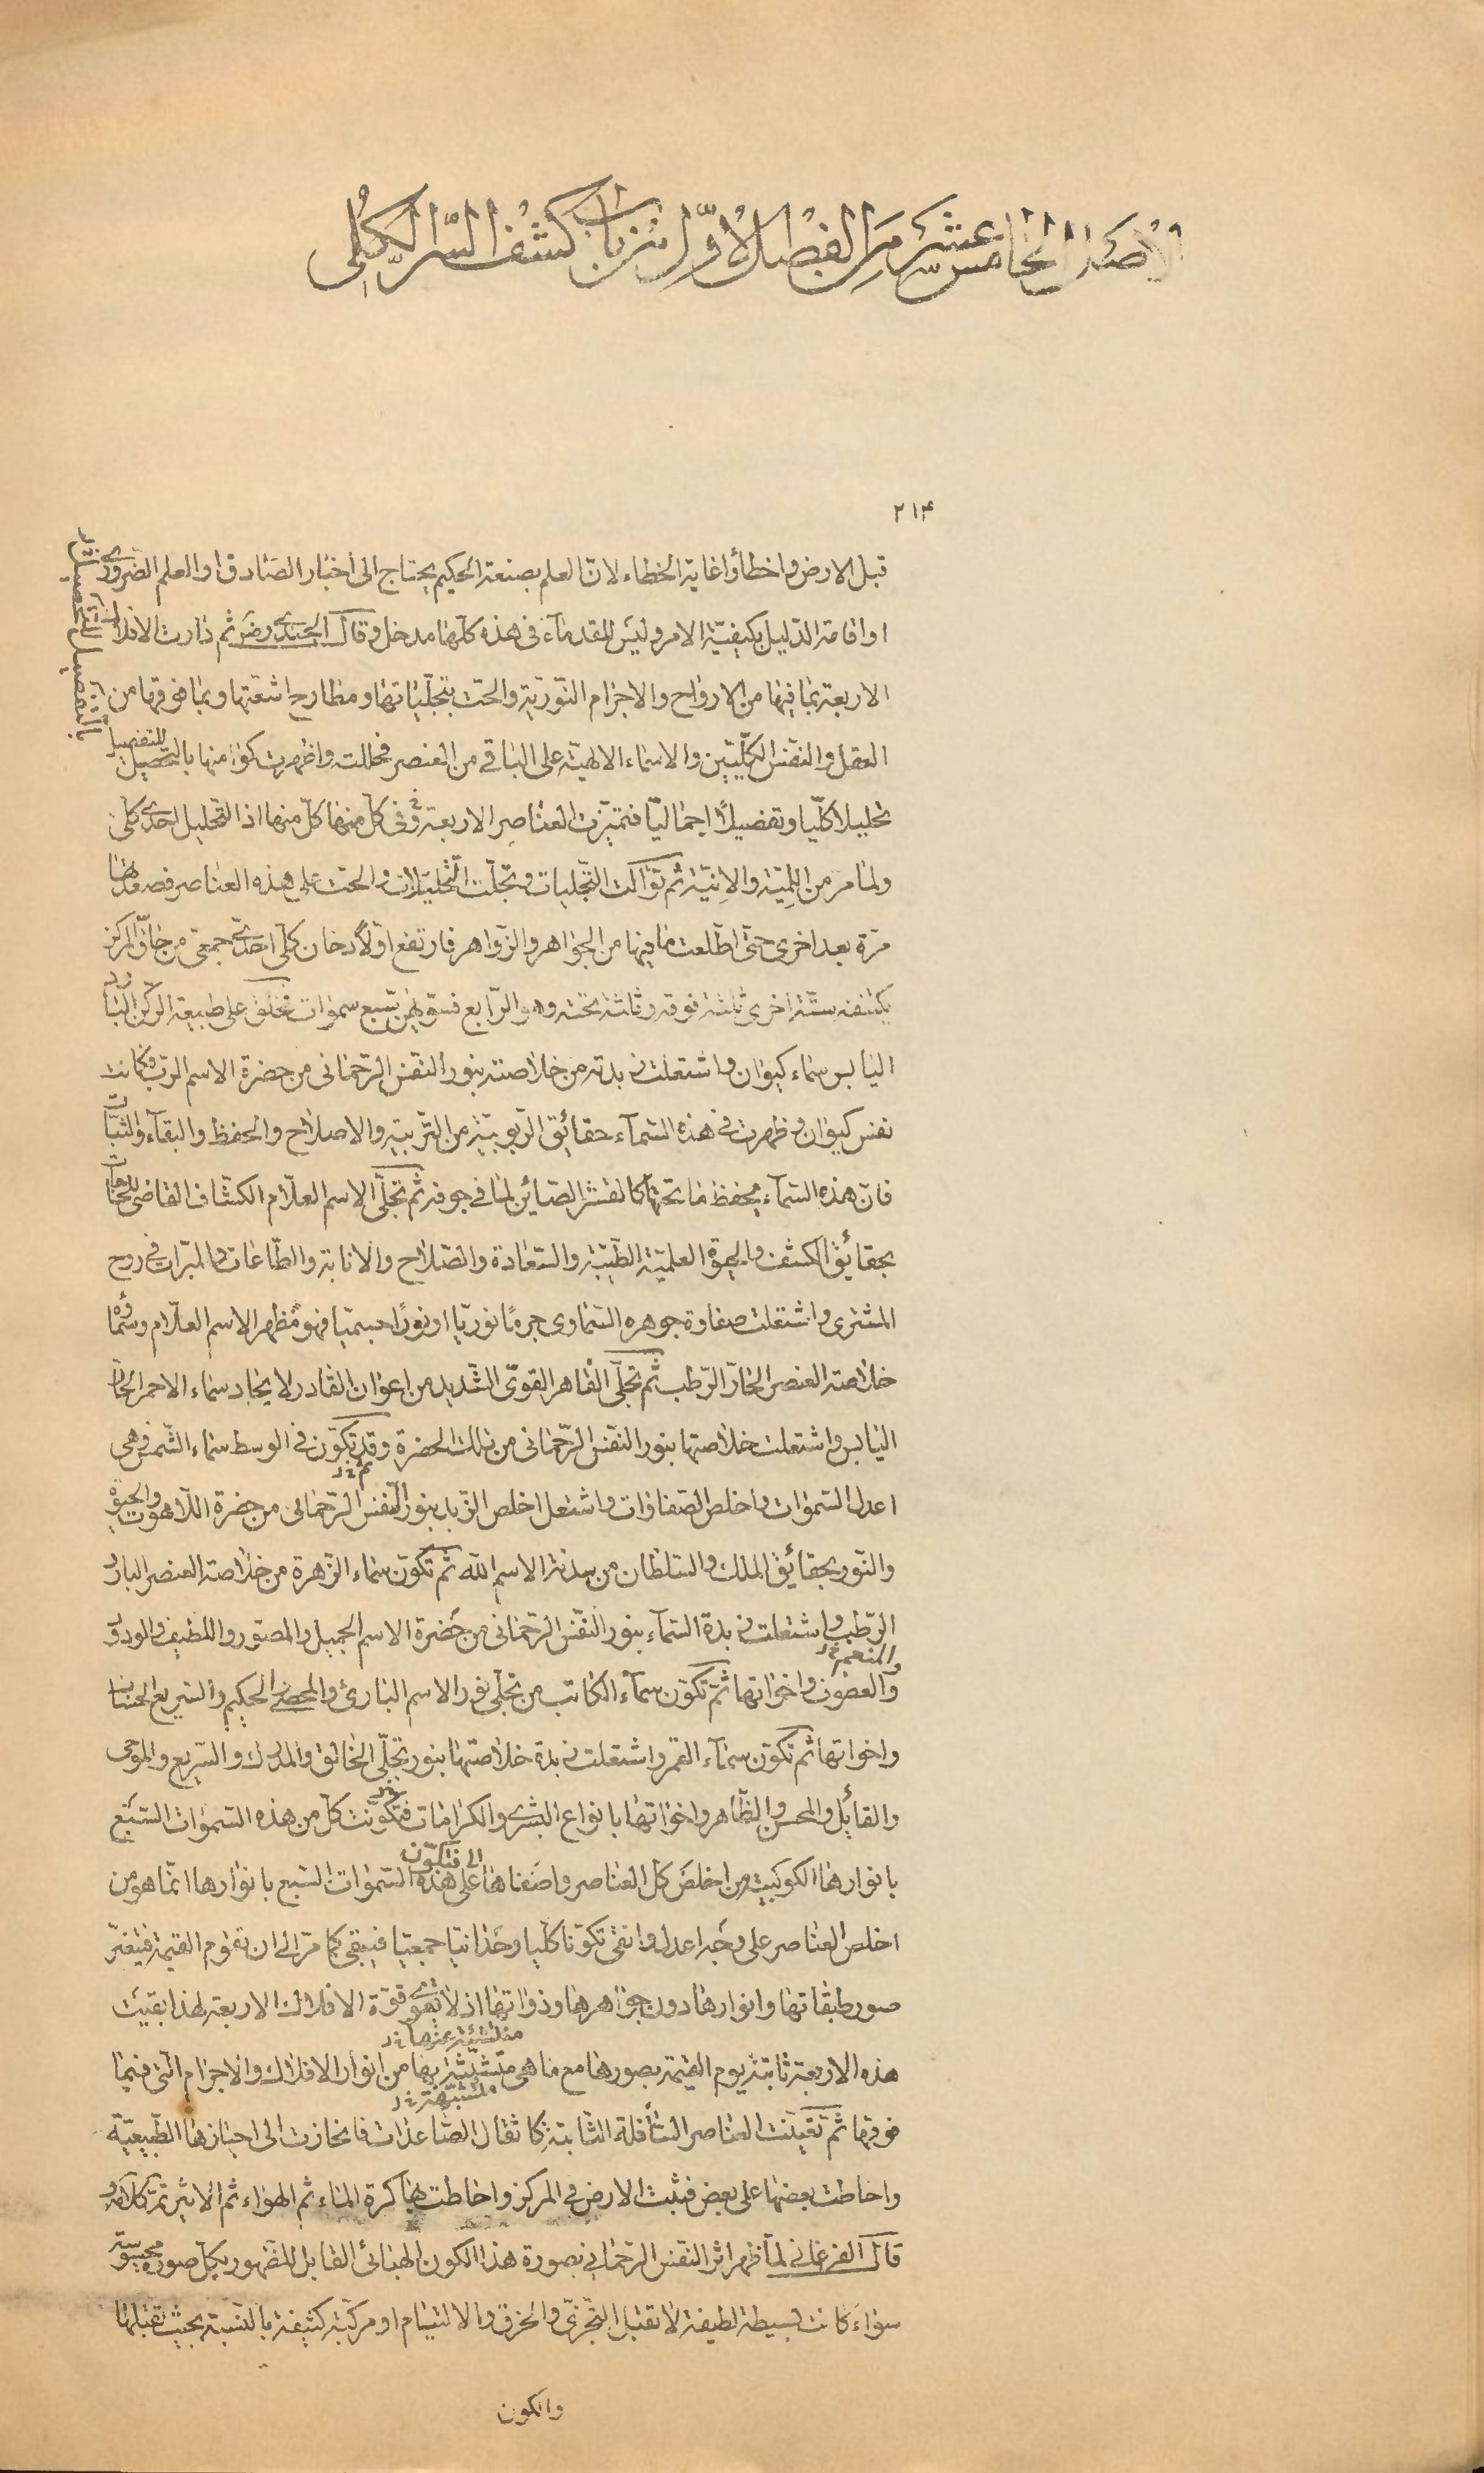 الاصل الخامس عشر من الفصل الاوّل من باب كشف السّر الكلّى
٢١۴
قبل الارض واخطأوا غاية الخطاء لانّ العلم بصنعة الحكيم يحتاج الى اخبار الصّادق او العلم الضّرورى
او اقامة الدّليل بكيفيّة الامر وليس للقدمآء فى هذه كلّها مدخل وقال الجندى رض ثم دارت الافلاك
الاربعة بما فيها من الارواح والاجرام النّوريّة والحّت بتجلّياتها ومطارح اشعّتها وبما فوقها من
العقل والنفس الكلّيين والاسماء الالهيّة على الباقى من العنصر فحللت واظهرت كوامنها بالتحصيل
للتفصيل
تحليلا كلّيا وتفصيلاً اجماليّا فتميّزت العناصر الاربعة وفى كلّ منها كلّ منها اذ التحليل احدى كلى
ولما مر من اللّميّة والانيّة ثم تواكت التّجليات وتجلّت التّحليلات والحّت على هذه العناصر فصعدتها
مرّة بعد اخرى حتّى اطّلعت ما فيها من الجواهر والزّواهر فارتفع اوّلاً دخان كلّى احدى جمعى من حاقّ المركز
يكتنفه ستّة اخرى ثلثة فوقه وثلثة تحته وهو الرّابع فسوّيهن سبع سموات فخلق على طبيعة الركن البارد
اليابس سماء كيوان واشتعلت زبدته من خلاصته بنور النفس الرّحمانى من حضرة الاسم الربّ فكانت
نفس كيوان وظهرت فى هذه السّمآء حقائق الرّبوبيّة من التّربية والاصلاح والحفظ والبقآء والثّبات
فانّ هذه السّمآء يحفظ ما تحتها كالقشر الصّائن لما فى جوفه ثمّ تجلّى الاسم العلّام الكشّاف القاضى للحاجات
بحقائق الكشف والحيوة العلميّة الطّيّبة والسّعادة والصّلاح والانابة والطّاعات والمبرّات فى روح
المشترى واشتعلت صفاوة جوهره السّماوى جرمًا نوريّا او نورًا جسميّا فهو مظهر الاسم العلّام وسماؤه
خلاصة العنصر الحارّ الرّطب ثم تجلّى القاهر القوىّ الشّديد من اعوان القادر لايجاد سماء الاحمر الحارّ
اليابس واشتعلت خلاصتها بنور النفس الرّحمانى من تلك الحضرة وقد تكوّن فى الوسط سماء الشّمس وهى
ثم خ‌ل
اعدل السّموات واخلص الصّفاوات واشتعل اخلص الزّبد بنور النّفس الرّحمانى من حضرة اللّاهوت والحيوة
والنّور بحقائق الملك والسّلطان من سدنة الاسم اللّه ثمّ تكوّن سماء الزّهرة من خلاصة العنصر البارد
الرّطب واشتعلت زبدة السّمآء بنور النّفس الرّحمانى من حضرة الاسم الجميل والمصوّر واللّطيف والودود
والمنعم خ‌ل
والعطوف واخواتها ثمّ تكوّن سمآء الكاتب من تجلّى نور الاسم البارئ والمحصى الحكيم والسّريع الحساب
واخواتها ثم تكوّن سمآء القمر واشتعلت زبدة خلاصتها بنور تجلّى الخالق والمدرك والسّريع والموحى
والقائل والمحسن والظّاهر واخواتها بانواع البشرى والكرامات فتكوّنت كلّ من هذه السّموات السّبع
بانوارها الكوكبيّة من اخلص كلّ العناصر واصفاها على هذه السّموات السّبع بانوارها انّما هو من
فتكوّن
اخلص العناصر على وجه اعدل واتقى تكوّنا كلّيا وحدانيّا جمعيّا فيبقى كما مرّ الى ان تقوم القيمة فيتغيّر
صور طبقاتها وانوارها دون جواهرها وذواتها اذ لا تقوى قوّة الافلاك الاربعة لهذا بقيت
هذه الاربعة ثابتة يوم القيمة بصورها مع ما هى متشبّثة بها من انوار الافلاك والاجرام الّتى فيما
فوقها ثم تعيّنت العناصر السّافلة الثّابتة كاثقال الصّاعدات فانحازت الى احيازها الطّبيعيّة
واحاطت بعضها على بعض فثبت الارض فى المركز واحاطت بها كرة الماء ثم الهواء ثم الاثير تمّ كلامه و
قال الفرغانى لمّا ظهر اثر النفس الرّحمانى بصورة هذا الكون الهبائى القابل للظهور بكلّ صورة محسوسة
سواء كانت بسيطة لطيفة لا تقبل التّجزّى والخرق والالتيام او مركّبة كثيفة بالنّسبة بحيث تقبلها
والكون